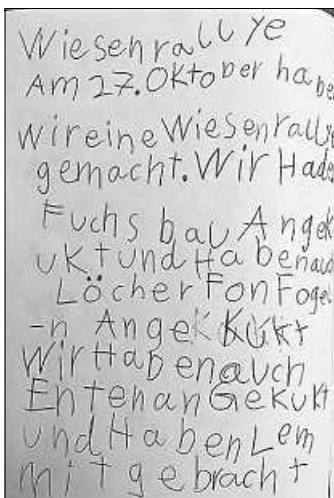 Wiesenrallye
Am 27. Oktober habe
wir eine Wiesenrallye
gemacht. Wir Had
Fuchs bau Angek
ukt und Haben auc
Löcher Fon Fogel
-n Angekukt
Wir Haben auch
Enten an Gekukt
und Haben Lem
mit gebracht